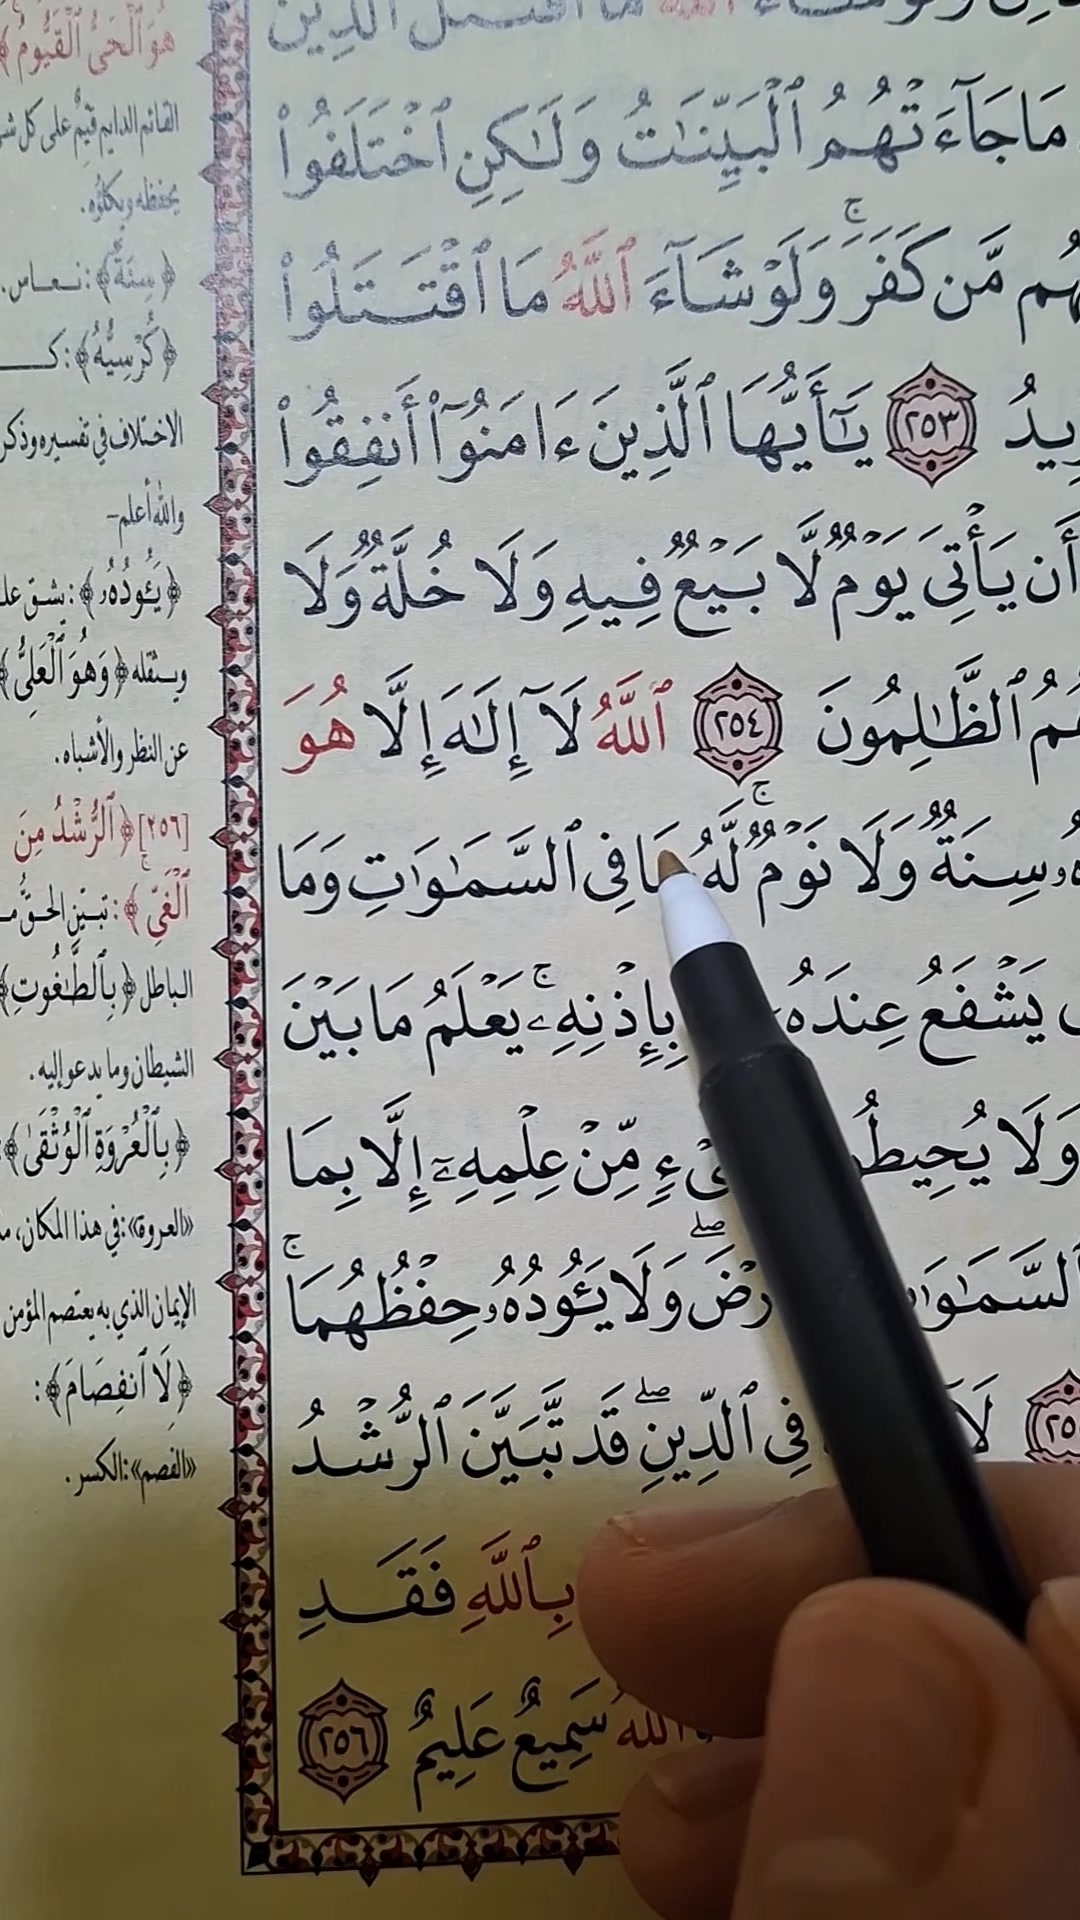 مَا جَآءَتْهُمُ ٱلْبَيِّنَٰتُ وَلَٰكِنِ ٱخْتَلَفُوا۟
مَّن كَفَرَ ۚ وَلَوْ شَآءَ ٱللَّهُ مَا ٱقْتَتَلُوا۟
٢٥٣ يَٰٓأَيُّهَا ٱلَّذِينَ ءَامَنُوٓا۟ أَنفِقُوا۟
أَن يَأْتِىَ يَوْمٌ لَّا بَيْعٌ فِيهِ وَلَا خُلَّةٌ وَلَا
ٱلظَّٰلِمُونَ ٢٥٤ ٱللَّهُ لَآ إِلَٰهَ إِلَّا هُوَ
سِنَةٌ وَلَا نَوْمٌ ۚ لَّهُۥ مَا فِى ٱلسَّمَٰوَٰتِ وَمَا
يَشْفَعُ عِندَهُۥٓ بِإِذْنِهِۦ ۚ يَعْلَمُ مَا بَيْنَ
وَلَا مِّنْ عِلْمِهِۦٓ إِلَّا بِمَا
وَلَا يَـُٔودُهُۥ حِفْظُهُمَا ۚ
لَآ فِى ٱلدِّينِ ۖ قَد تَّبَيَّنَ ٱلرُّشْدُ
بِٱللَّهِ فَقَدِ
ٱللَّهُ سَمِيعٌ عَلِيمٌ ٢٥٦
هُوَ ٱلْحَىُّ ٱلْقَيُّومُ ﴾
القائم الدايم قيّم على كل
يحفظه ويكلؤه.
﴿ سِنَةٌ ﴾: نعاس.
﴿ كُرْسِيُّهُ ﴾:
الاختلاف في تفسيره وذكر
والله أعلم-
﴿ يَـُٔودُهُۥ ﴾: يشق
ويثقله ﴿ وَهُوَ ٱلْعَلِىُّ ﴾
عن النظر والأشباه.
[٢٥٦] ﴿ ٱلرُّشْدُ مِنَ
ٱلْغَىِّ ۚ ﴾: تبين الحق
الباطل ﴿ بِٱلطَّٰغُوتِ ﴾
الشيطان وما يدعو إليه.
﴿ بِٱلْعُرْوَةِ ٱلْوُثْقَىٰ ﴾
«العروة»: في هذا المكان،
الإيمان الذي به يعتصم المؤمن
﴿ لَا ٱنفِصَامَ ﴾:
«الفصم»: الكسر.